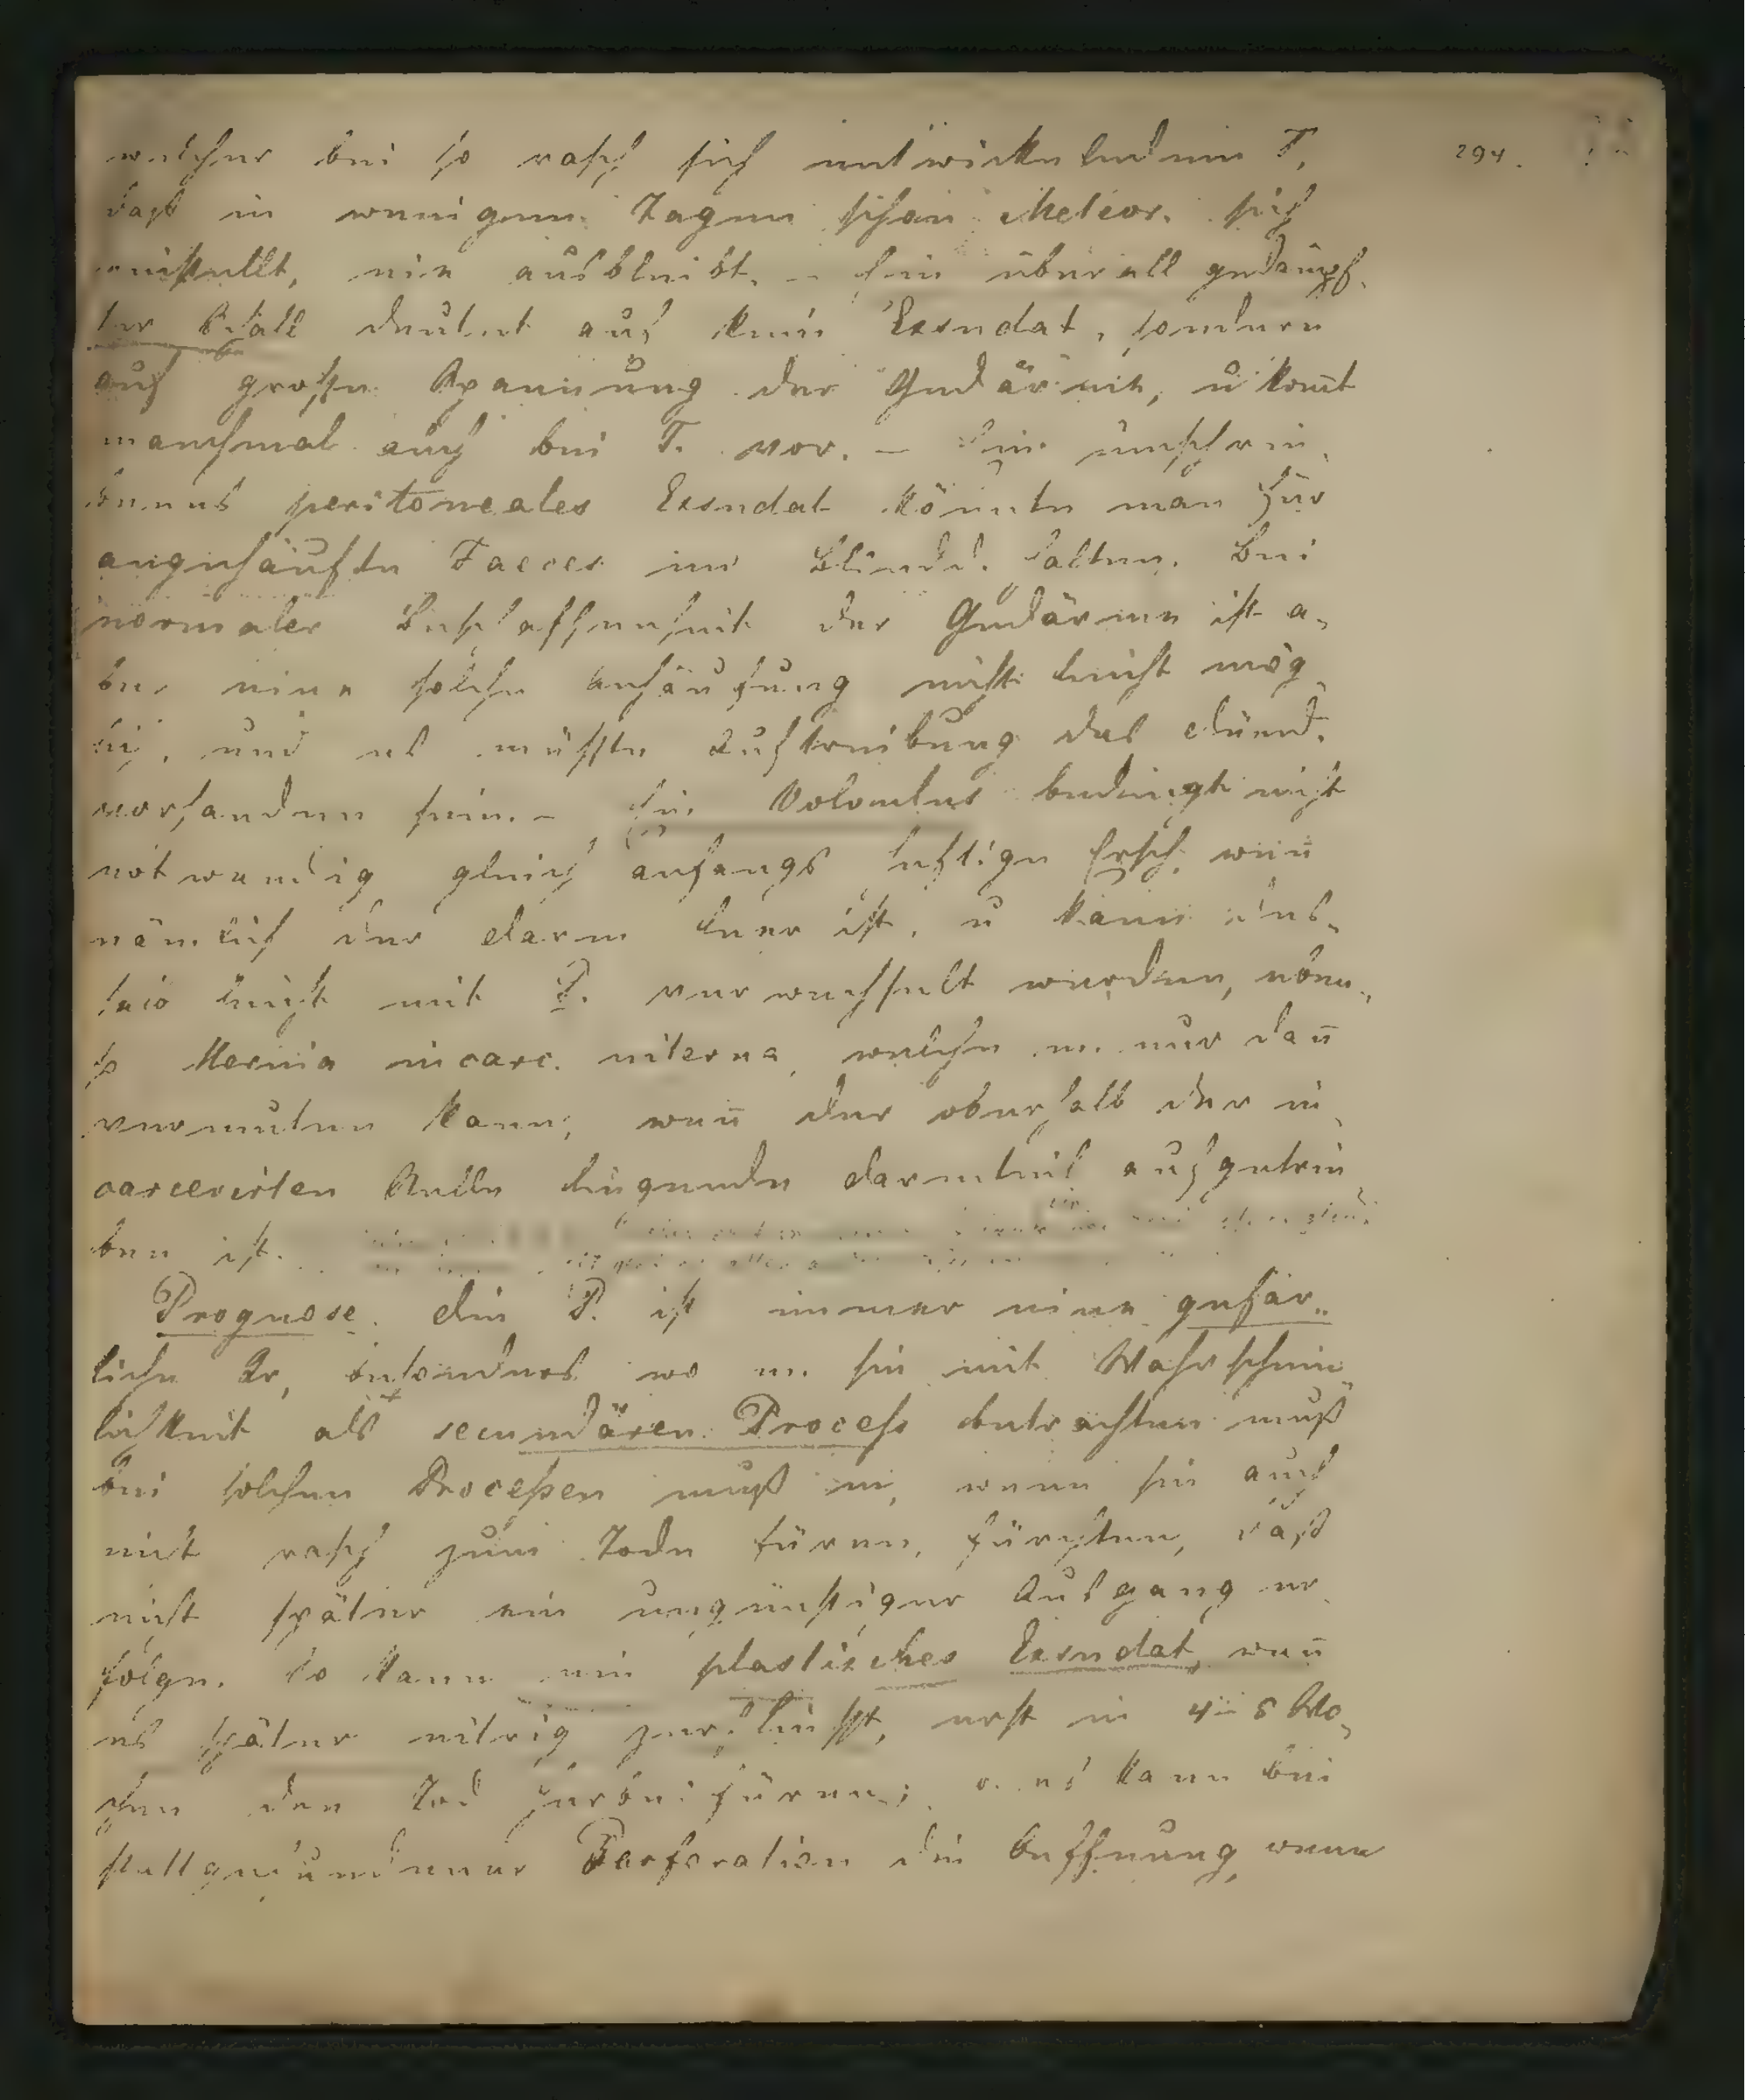 welcher bei so rasch sich entwickelndem T, 294.
daß in wenigen Tagen schon Meteor. sich
einstellt, nie ausbleibt. – Ein überall gedämpf-
ter Schall deutet auf kein Exsudat, sondern
auf große Spannung der Gedärme, u kom̄t
manchmal auch bei T. vor. – Ein umschrie-
benes peritoneales Exsudat könnte man für
angehäufte Faeces im Blindd. halten. Bei
normaler Beschaffenheit der Gedärme ist a-
ber eine solche Anhäufung nicht leicht mög-
lich, und es müßte Auftreibung des Dünnd.
vorhanden sein. – Ein Volvulus bedingt nicht
notwendig gleich anfangs heftige Ersch. wen̄
nämlich der Darm leer ist, u kann des-
halb leicht mit P. verwechselt werden, eben-
so Hernia incarc. interna, welche m. nur dan̄
vermuten kann, wen̄ der oberhalb der in-
carcerirten Stelle liegende Darmteil aufgetrie-
ben ist.
Prognose. Die P. ist immer eine gefär-
liche Kr, besonders wo m. sie mit Wahrschein-
lichkeit als secundären Proceß betrachten muß
bei solchen Proceßen muß m, wenn sie auch
nicht rasch zum Tode füren, fürchten, daß
nicht später ein ungünstiger Ausgang er-
folge. So kann ein plastisches Exsudat, wen̄
es später eitrig zerfließt, erst in 4–8 Wo-
chen den Tod herbeifüren; o. es kann bei
stattgefundener Perforation die Oeffnung, wenn